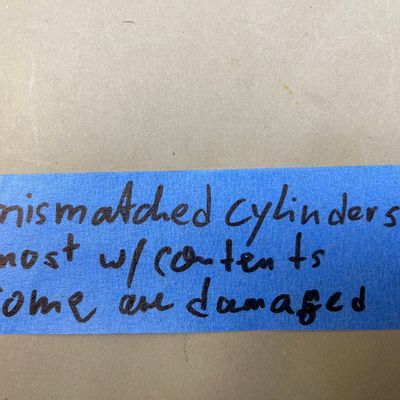 mismatched cylinders
most w/ contents
some are damaged